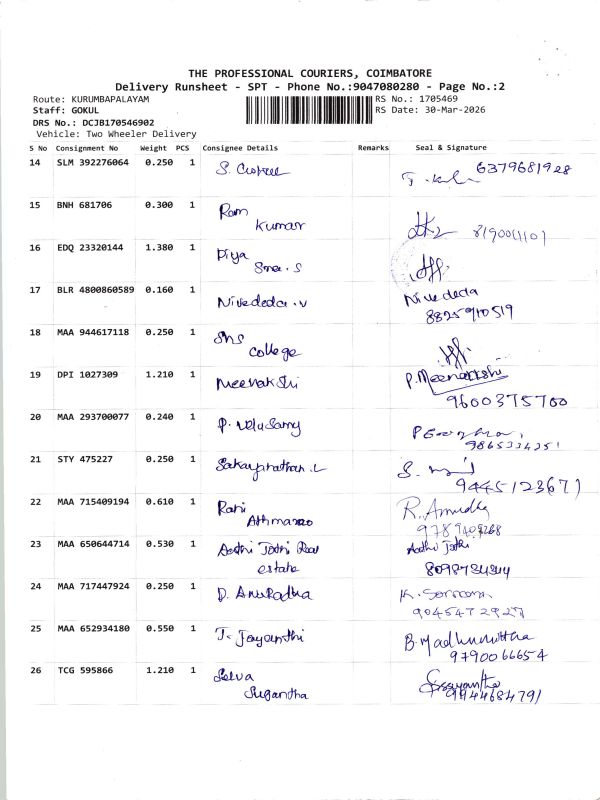 THE PROFESSIONAL COURIERS, COIMBATORE
Delivery Runsheet - SPT - Phone No.:9047080280 - Page No.:2
Route: KURUMBAPALAYAM RS No.: 1705469
Staff: GOKUL RS Date: 30-Mar-2026
DRS No.: DCJB170546902
Vehicle: Two Wheeler Delivery
S No Consignment No Weight PCS Consignee Details Remarks Seal & Signature
14 SLM 392276064 0.250 1 S. 6379681928
15 BNH 681706 0.300 1 Ram
Kumar
16 EDQ 23320144 1.380 1 Piya
S
17 BLR 4800860589 0.160 1 Nivededa.v Nivededa
8825910519
18 MAA 944617118 0.250 1 Sns
College
19 DPI 1027309 1.210 1 Meenakshi P.Meenakshi
9600375700
20 MAA 293700077 0.240 1 P. Velusamy
9865334351
21 STY 475227 0.250 1 S.
9445123671
22 MAA 715409194 0.610 1 Rani R. Anudha
23 MAA 650644714 0.530 1 Aathi Jothi Real Aathi Jothi
estate
24 MAA 717447924 0.250 1 D. Anuradha K.
9045472927
25 MAA 652934180 0.550 1 J. Jayanthi B. Madhumittha
9790066654
26 TCG 595866 1.210 1 Selva
Sugantha 9944684791